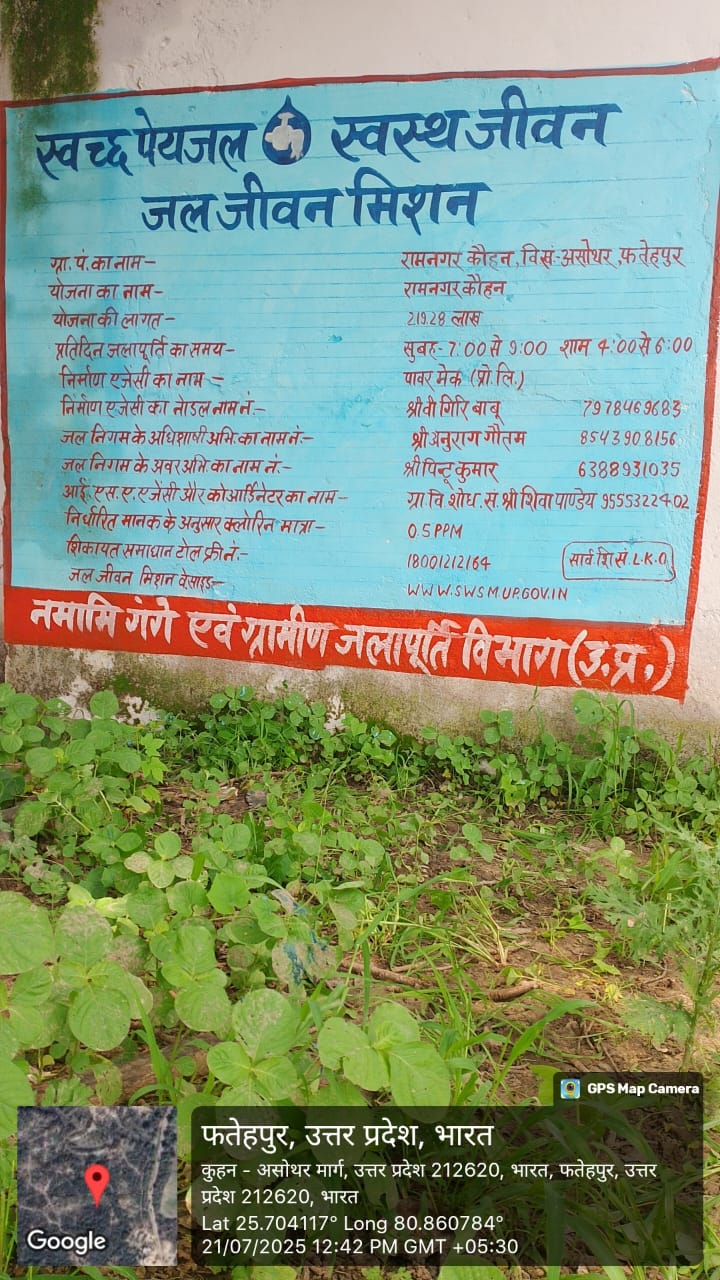 स्वच्छ पेयजल स्वस्थ जीवन
जल जीवन मिशन
ग्रा. पं. का नाम- रामनगर कौहन, वि.खं.-असोथर, फतेहपुर
योजना का नाम- रामनगर कौहन
योजना की लागत- 219.28 लाख
प्रतिदिन जलापूर्ति का समय- सुबह-7:00 से 9:00 शाम 4:00 से 6:00
निर्माण एजेंसी का नाम- पावर मेक (प्रो.लि.)
निर्माण एजेंसी का नोडल नाम नं:- श्री वी गिरि बाबू 7978469683
जल निगम के अधिशाषी अभि. का नाम नं:- श्री अनुराग गौतम 8543908156
जल निगम के अवर अभि. का नाम नं:- श्री पिन्टू कुमार 6388931035
आई. एस. ए. एजेंसी और कोआर्डिनेटर का नाम- ग्रा. वि. शोध. सं. श्री शिवा पाण्डेय 9555322402
निर्धारित मानक के अनुसार क्लोरिन मात्रा- 0.5 PPM
शिकायत समाधान टोल फ्री नं:- 18001212164 सावं शि सं. L.K.O
जल जीवन मिशन वेसाइड- WWW.SWSMUP.GOV.IN
नमामि गंगे एवं ग्रामीण जलापूर्ति विभाग (उ.प्र.)
GPS Map Camera
फतेहपुर, उत्तर प्रदेश, भारत
कुहन - असोथर मार्ग, उत्तर प्रदेश 212620, भारत, फतेहपुर, उत्तर
प्रदेश 212620, भारत
Lat 25.704117° Long 80.860784°
21/07/2025 12:42 PM GMT +05:30
Google